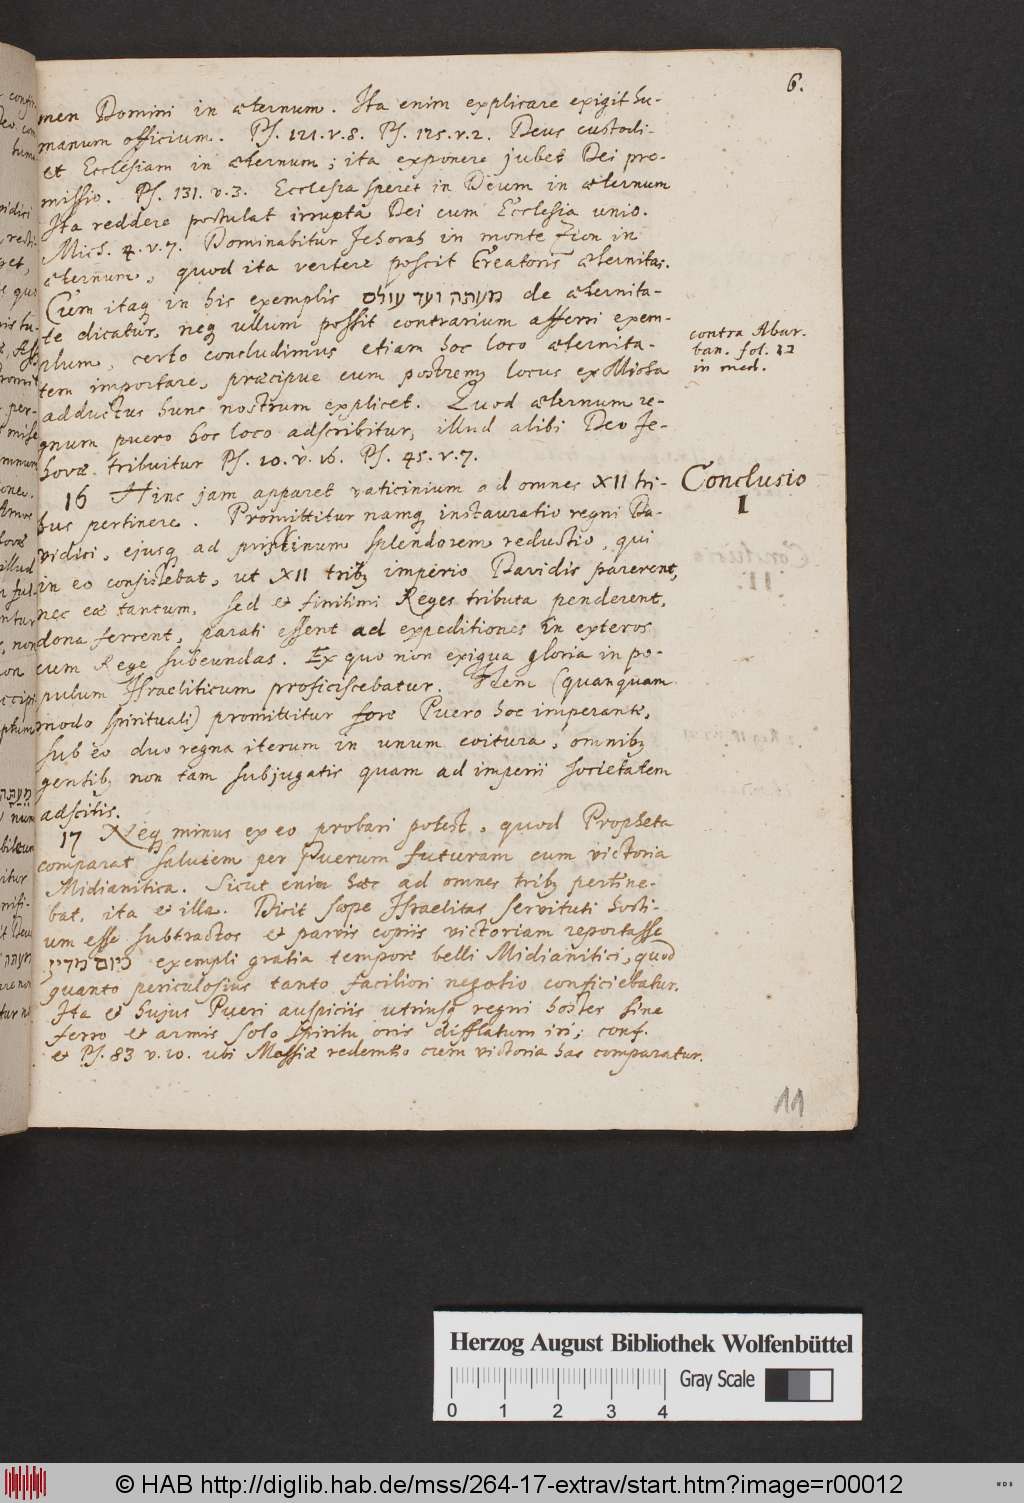 6.
men Domini in æternum. Ita enim explicare exigit hu-
manum officium. Ps. 121. v. 8. Ps. 125. v. 2. Deus custodi-
et Ecclesiam in æternum; ita exponere jubet Dei pro-
missio. Ps. 131. v. 3. Ecclesia speret in Deum in æternum
Ita reddere postulat irrupta Dei cum Ecclesia unio.
Mich. 4. v. 7. Dominabitur Jehovah in monte Zion in
æternum, quod ita vertere poscit Creatoris æternitas.
Cum itaq in his exemplis מעתה ועד עולם de æternita-
te dicatur, neq ullum possit contrarium afferri exem-
plum, certo concludimus etiam hoc loco æternita-
tem importare, præcipue cum postremq locus ex Micha
adductus hunc nostrum explicet. Quod æternum re-
gnum puero hoc loco adscribitur, illud alibi Deo Je-
hovæ tribuitur Ps. 10. v. 16. Ps. 45. v. 7.
contra Abar.
tan. fol. 22
in med.
16 Hinc jam apparet vaticinium ad omnes XII tri-
bus pertinere. Promittitur namq instauratio regni Da-
vidici, ejusq ad pristinum splendorem reductio, qui
in eo consistebat, ut XII tribq imperio Davidis parerent,
nec eæ tantum, sed et finitimi Reges tributa penderent,
dona ferrent, parati essent ad expeditiones in exteros
cum Rege subeundas. Ex quo non exigua gloria in po-
pulum Israeliticum proficiscebatur. Idem (quanquam
modo spirituali) promittitur fore Puero hoc imperante,
sub eo duo regna iterum in unum coitura, omnibq
gentibq non tam subjugatis quam ad imperii societatem
adscitis.
Conclusio
I
17 Neq minus ex eo probari potest, quod Propheta
comparat salutem per Puerum futuram cum victoria
Midianitica. Sicut enim hæc ad omnes tribq pertine-
bat, ita et illa. Dicit sæpe Israelitas servituti hosti-
um esse subtractos et parvis copiis victoriam reportasse
כיום מדין exempli gratia tempore belli Midianitici, quod
quanto periculosius tanto faciliori negotio conficiebatur.
Ita et hujus Pueri auspiciis utriusq regni hostes sine
ferro et armis solo spiritu oris difflatum iri; conf.
et Ps. 83 v. 10. ubi Messiæ redemtio cum victoria hac comparatur.
11
Herzog August Bibliothek Wolfenbüttel
Gray Scale
0 1 2 3 4
© HAB http://diglib.hab.de/mss/264-17-extrav/start.htm?image=r00012